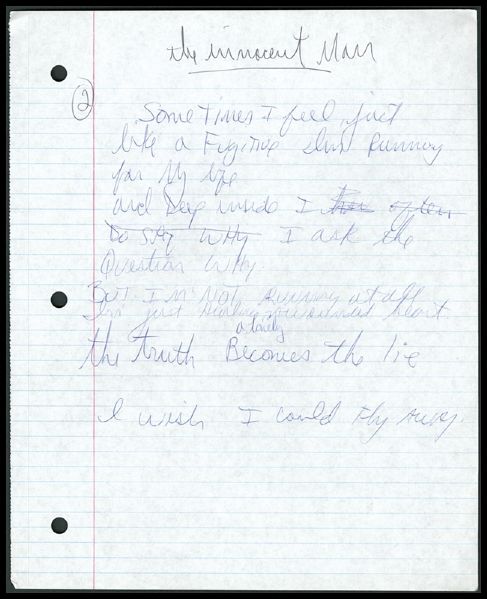 the innocent Man
2
Some Times I feel just
like a Fugitive Im Running
for My life
and Deep inside I often
to say Why I ask the
Question Why.
But Im Not Running at all
Im just heart
a lonely
the truth Becomes the lie
I wish I could Fly Away.